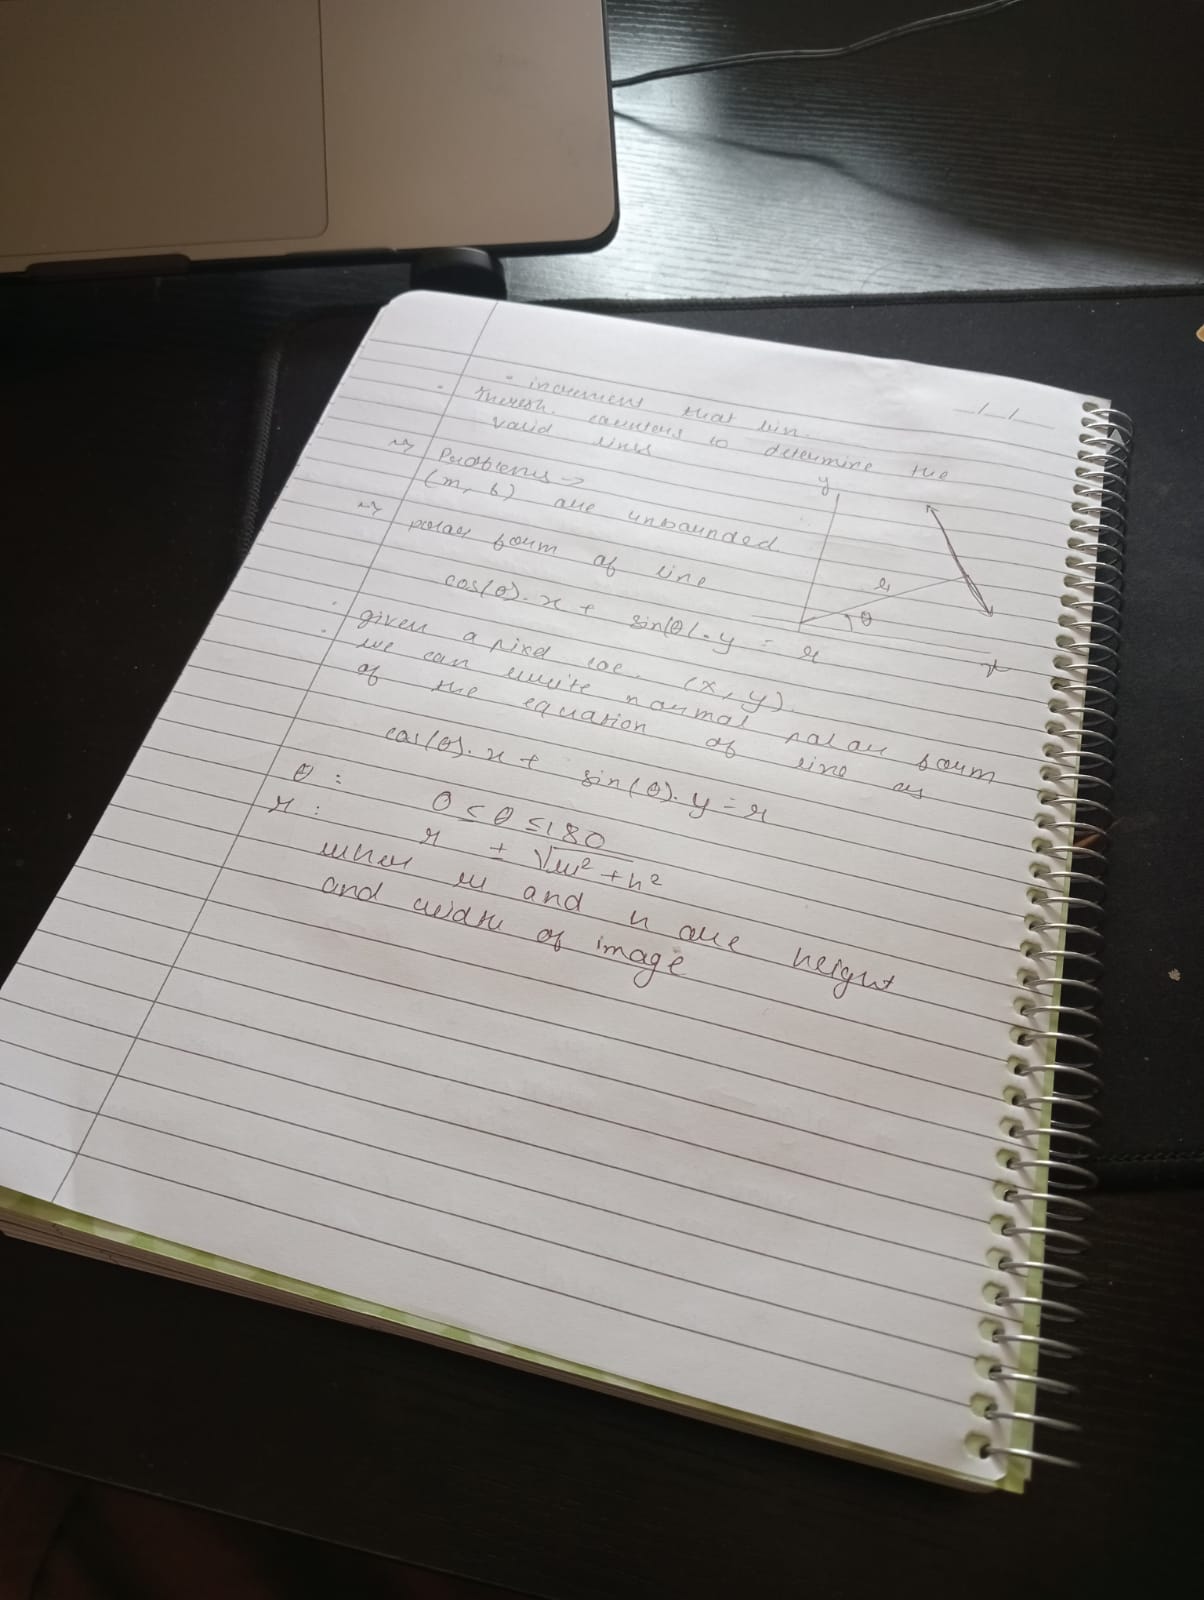 - increment that bin.
. Thresh. counters to determine the
valid lines
~> Problems ->
(m, b) are unbounded
~> polar form of line
cos(θ).x + sin(θ).y = r
y
r
θ
x
. given a pixel loc. (x, y)
. we can write normal polar form
of the equation of line as
cos(θ).x + sin(θ).y = r
θ : 0 ≤ θ ≤ 180
r : r ± √w² + h²
when w and h are height
and width of image